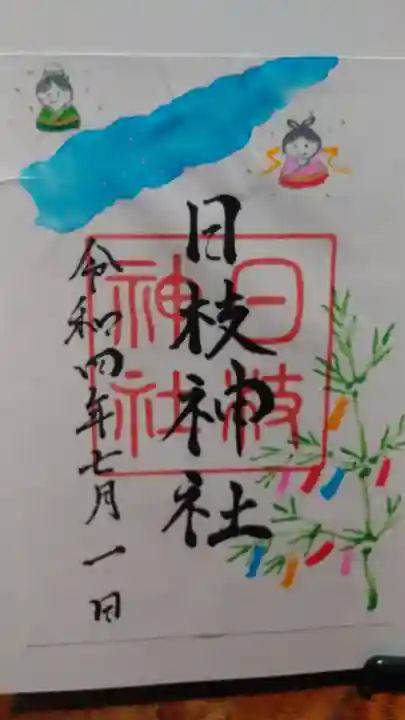 日枝神社
日枝
神社
令和四年七月一日